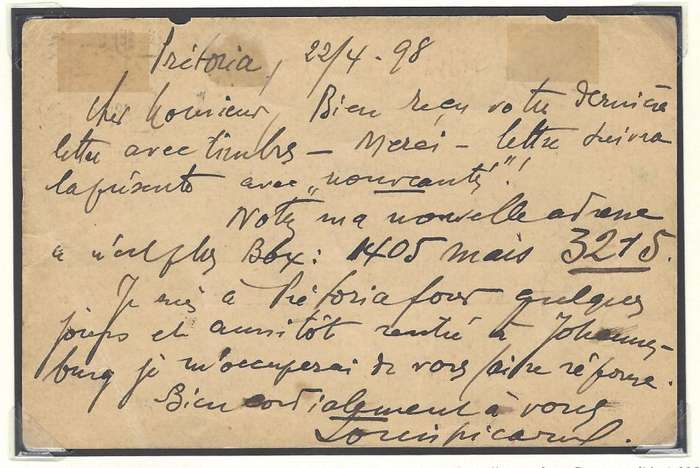 Prétoria, 22/4-98
Cher Monsieur, Bien reçu votre dernière
lettre avec timbres — Merci — lettre suivra
la présente avec „nouveautés"!
Notez ma nouvelle adresse
ce n'est plus Box: 1405 mais 3215.
Je suis à Prétoria pour quelques
jours et aussitôt rentré à Johannes-
burg je m'occuperai de vous faire réponse.
Bien cordialement à vous
Louis Picard.